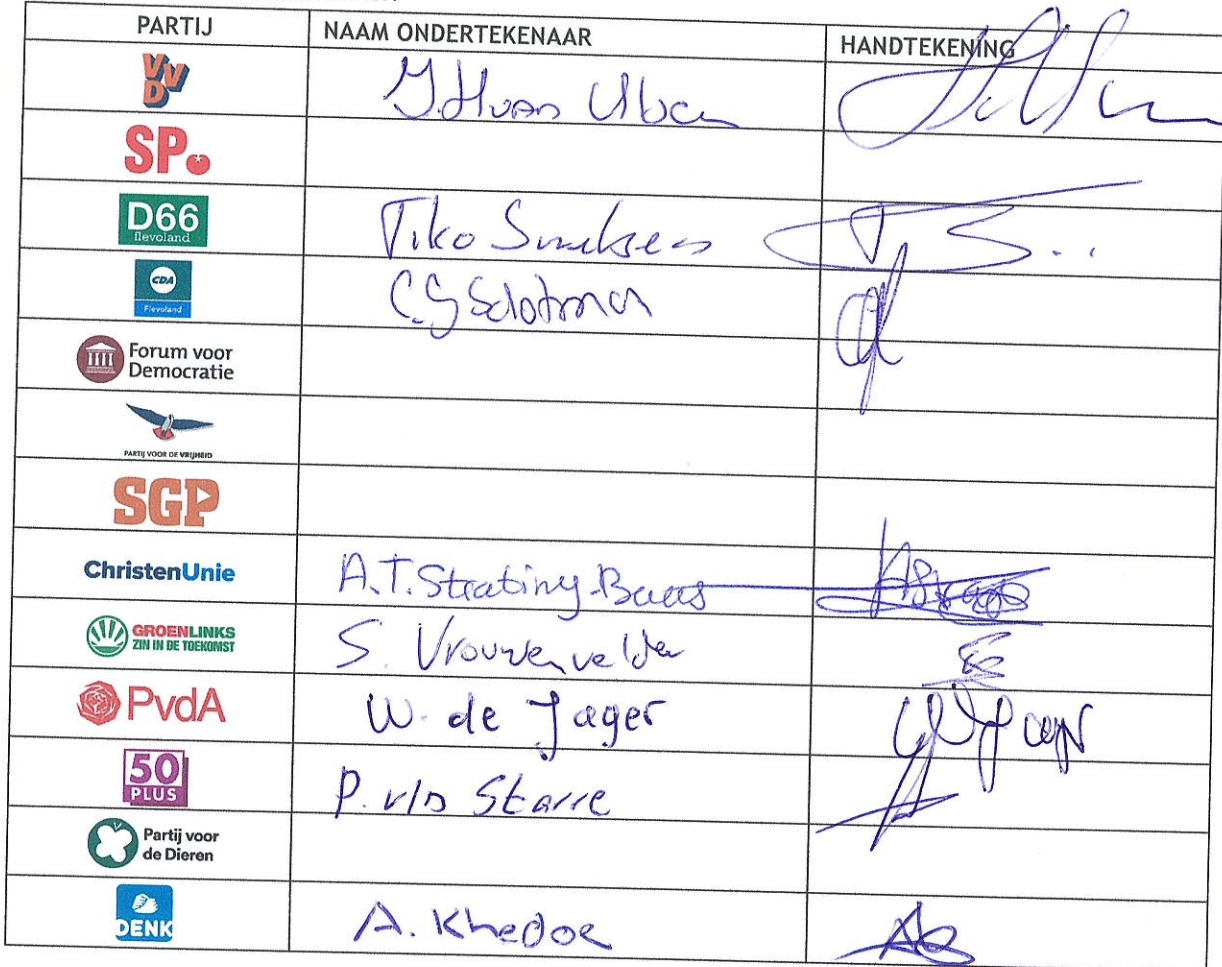 PARTIJ NAAM ONDERTEKENAAR HANDTEKENING
VVD
SP.
D66 flevoland Tiko Smetsers
CDA Flevoland C.G Slotman
Forum voor Democratie
PARTIJ VOOR DE VRIJHEID
SGP
ChristenUnie A.T. Strating-Baas
GROENLINKS
ZIN IN DE TOEKOMST S. Vrouwenvelder
PvdA W. de Jager
50 PLUS P. v/d Starre
Partij voor de Dieren
DENK A. Khedoe